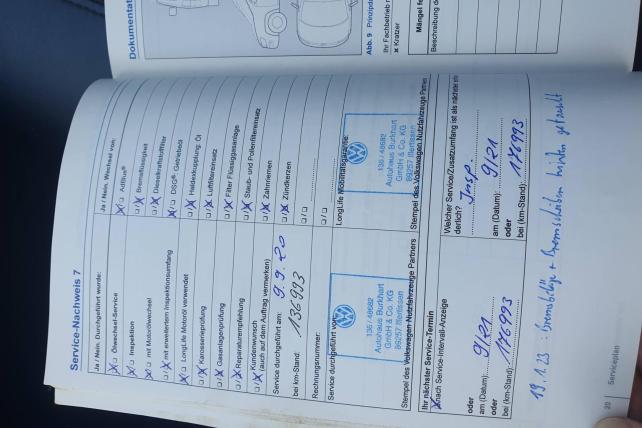 Dokumentat
Abb. 9 Prinzipda
Ihr Fachbetrieb n
x Kratzer
Mängel fe
Beschreibung de
Service-Nachweis 7
Ja / Nein. Durchgeführt wurde:
Ölwechsel-Service
Inspektion
mit Motorölwechsel
mit erweitertem Inspektionsumfang
LongLife Motoröl verwendet
Karosserieprüfung
Gasanlagenprüfung
Reparaturempfehlung
Kundenwunsch
(auch auf dem Auftrag vermerken)
Service durchgeführt am: 9.9.20
bei km-Stand: 136993
Rechnungsnummer:
Service durchgeführt von:
136 / 49582
Autohaus Burkhart
GmbH & Co. KG
89257 Illertissen
Stempel des Volkswagen Nutzfahrzeuge Partners
Ja / Nein. Wechsel von:
AdBlue®
Bremsflüssigkeit
Dieselkraftstofffilter
DSG® Getriebeöl
Haldexkupplung: Öl
Luftfiltereinsatz
Filter Flüssiggasanlage
Staub- und Pollenfiltereinsatz
Zahnriemen
Zündkerzen
LongLife Mobilitätsgarantie:
136 / 49582
Autohaus Burkhart
GmbH & Co. KG
89257 Illertissen
Stempel des Volkswagen Nutzfahrzeuge Partners
Ihr nächster Service-Termin
nach Service-Intervall-Anzeige
oder
am (Datum): 9/21
oder
bei (km-Stand): 176993
Welcher Service/Zusatzumfang ist als nächster erfor-
derlich?
Insp.
am (Datum): 9/21
oder
bei (km-Stand): 176993
19.1.23 : Bremsbeläge + Bremsscheiben hinten getauscht
20 | Serviceplan